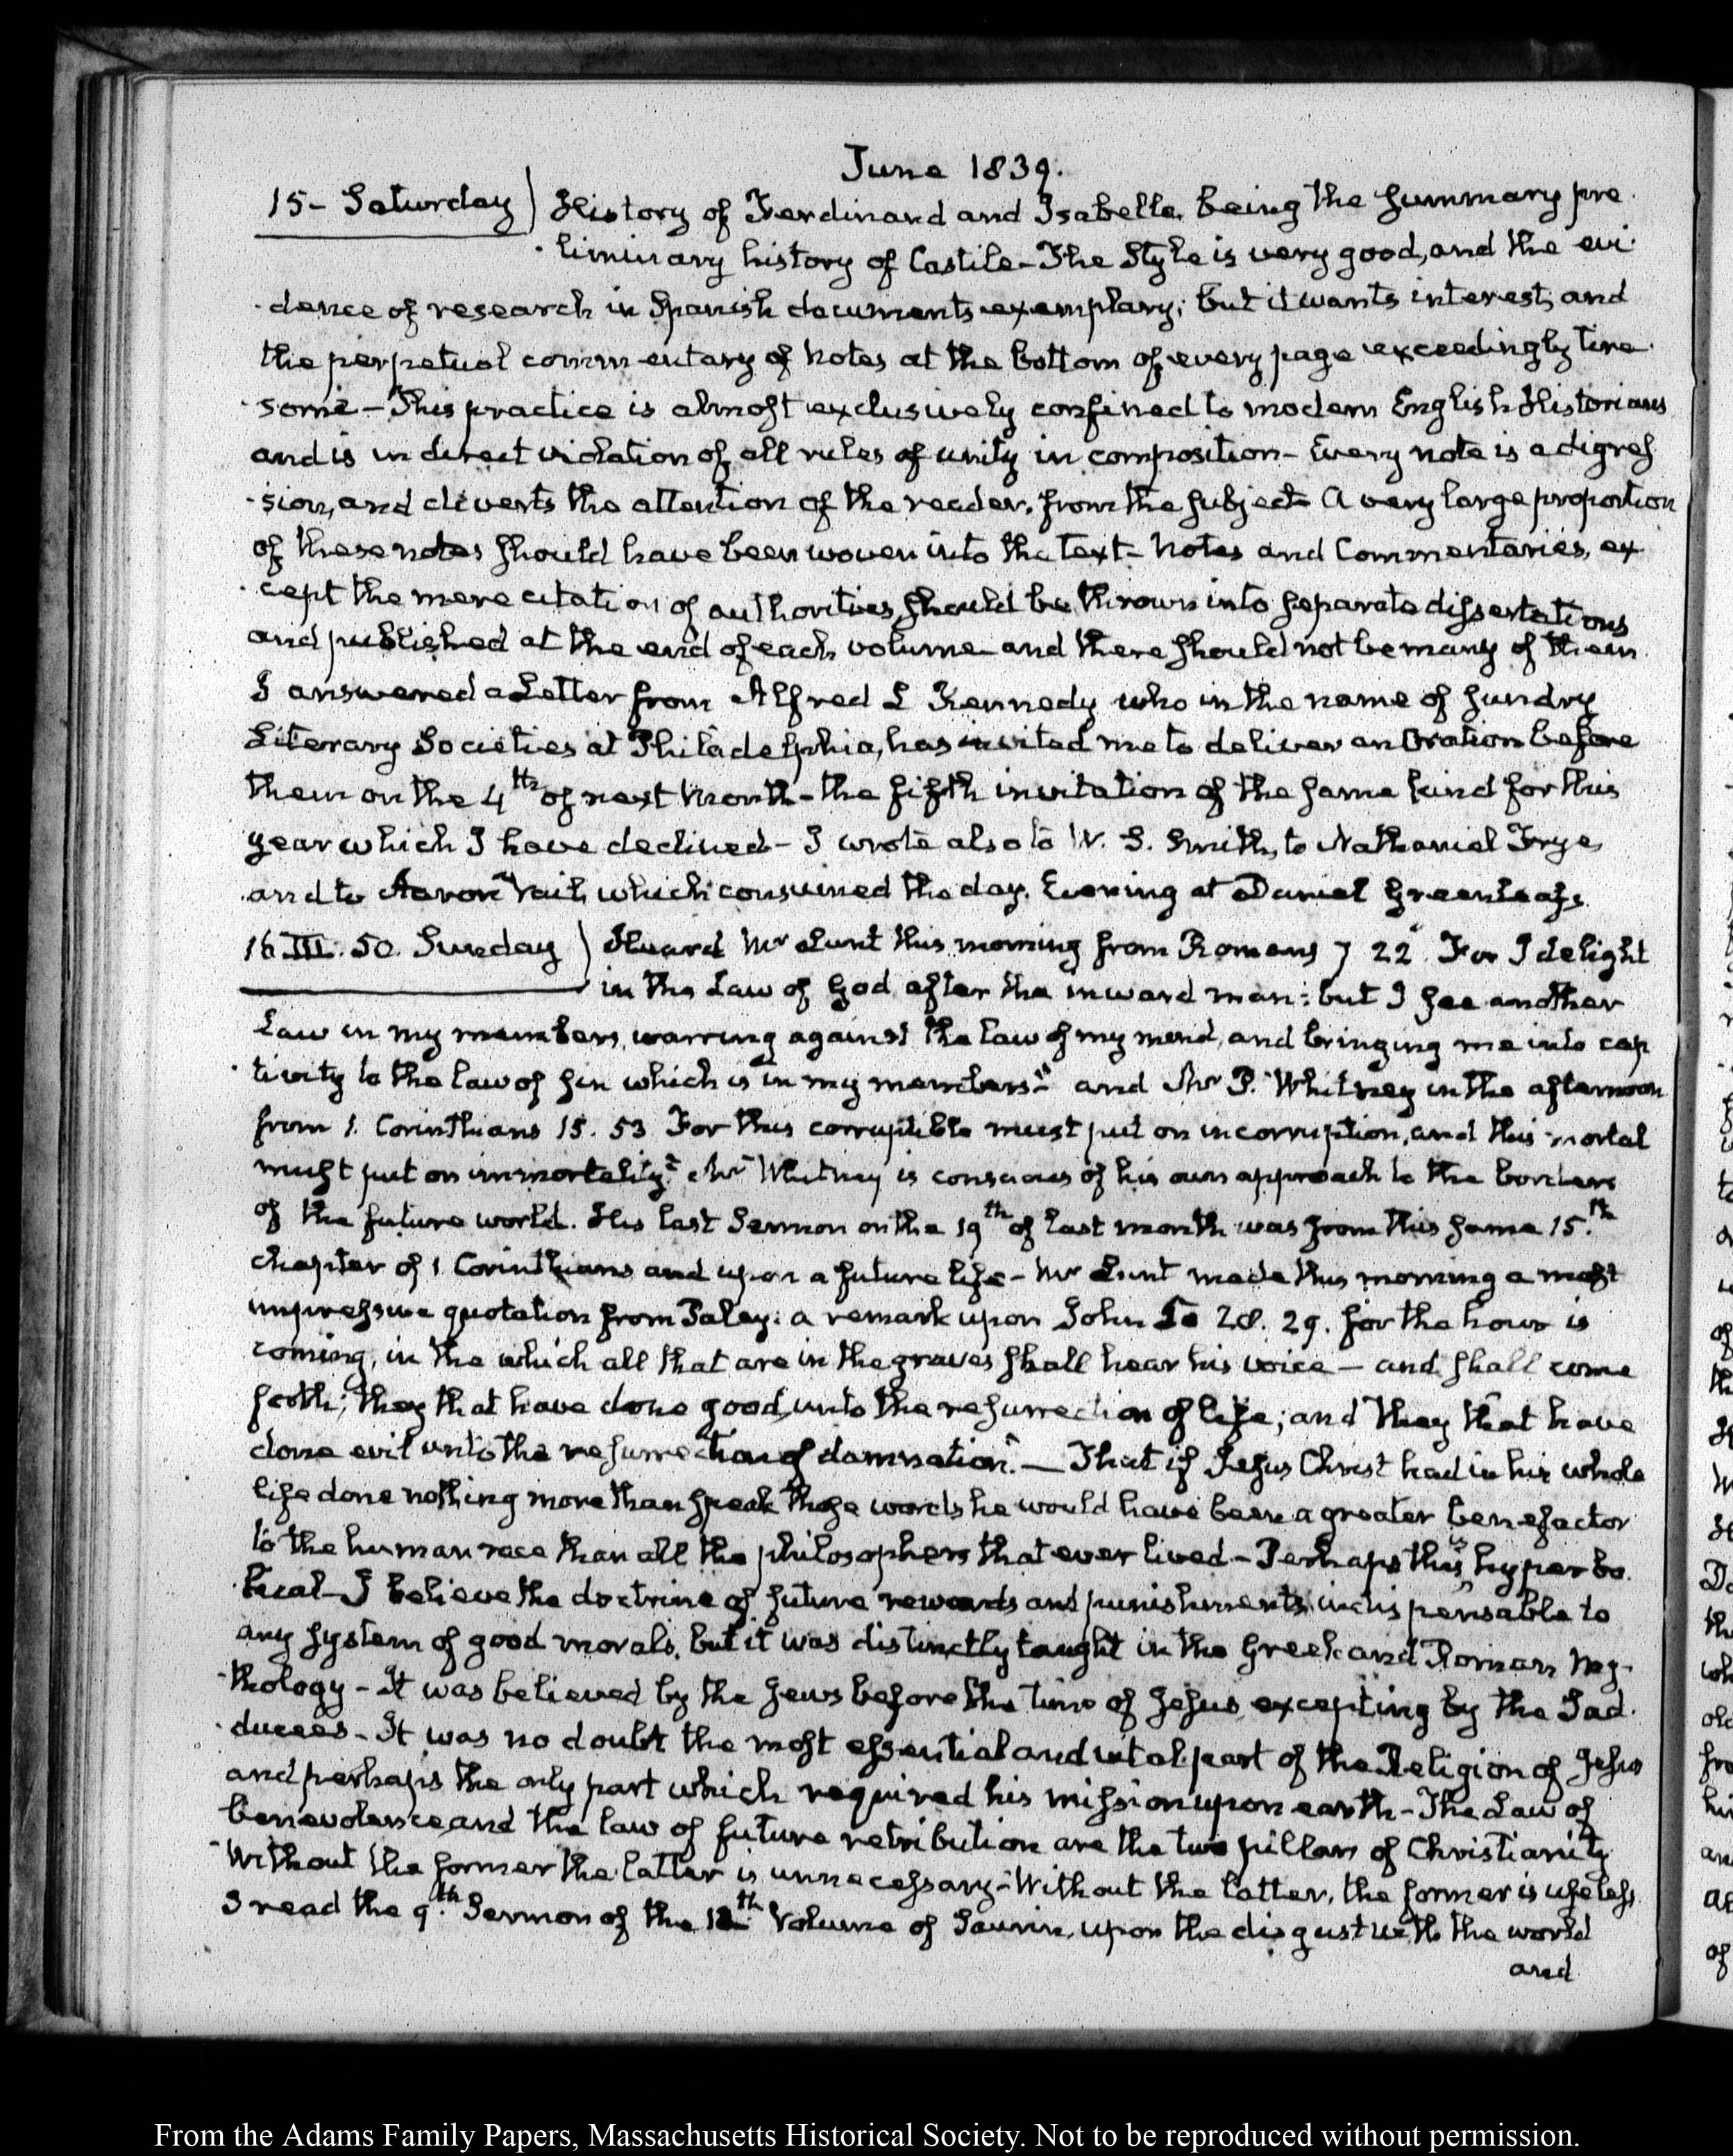 June 1839.
15- Saturday) History of Ferdinand and Isabella, being the summary pre
liminary history of Castile- The Style is very good, and the evi
dence of research in Spanish documents exemplary; but it wants interest, and
the perpetual commentary of notes at the bottom of every page exceedingly tire
some- This practice is almost exclusively confined to modern English Historians
and is in direct violation of all rules of unity in composition- Every note is a digres
sion, and diverts the attention of the reader, from the subject- A very large proportion
of these notes should have been woven into the Text- Notes and Commentaries, ex
cept the mere citation of authorities should be thrown into separate dissertations
and published at the end of each volume and there should not be many of them.
I answered a Letter from Alfred L Kennedy who in the name of sundry
Literary Societies at Philadelphia, has invited me to deliver an Oration before
them on the 4th of next Month- the fifth invitation of the same kind for this
year which I have declined- I wrote also to W. S. Smith, to Nathaniel Frye,
and to Aaron Vail, which consumed the day. Evening at Daniel Greenleaf's.
16 III. 50. Sunday) Heard Mr Lunt this morning from Romans 7 22 "For I delight
in the Law of God after the inward man: but I see another
Law in my members, warring against the law of my mind, and bringing me into cap
tivity to the law of sin which is in my members-" and Mr P. Whitney in the afternoon
from 1. Corinthians 15. 53 For this corruptible must put on incorruption, and this mortal
must put on immortality." Mr Whitney is conscious of his own approach to the borders
of the future world. His last Sermon on the 19th of last month was from this same 15.th
chapter of 1 Corinthians and upon a future life- Mr Lunt made this morning a most
impressive quotation from Paley: a remark upon John 5. 28. 29. for the hour is
coming, in the which all that are in the graves shall hear his voice- and shall come
forth; they that have done good, unto the resurrection of life; and they that have
done evil unto the resurrection of damnation."- That if Jesus Christ had in his whole
life done nothing more than speak those words he would have been a greater benefactor
to the human race than all the philosophers that ever lived- Perhaps this is hyperbo
lical- I believe the doctrine of future rewards and punishments, indispensable to
any system of good morals, but it was distinctly taught in the Greek and Roman My
thology- It was believed by the Jews before the time of Jesus excepting by the Sad
ducees- It was no doubt the most essential and vital part of the Religion of Jesus
and perhaps the only part which required his mission upon earth- The Law of
benevolence, and the law of future retribution are the two pillars of Christianity
Without the former the latter is unnecessary- Without the latter, the former is useless.
I read the 9.th Sermon of the 12th Volume of Saurin, upon the disgust with the world
and
From the Adams Family Papers, Massachusetts Historical Society. Not to be reproduced without permission.